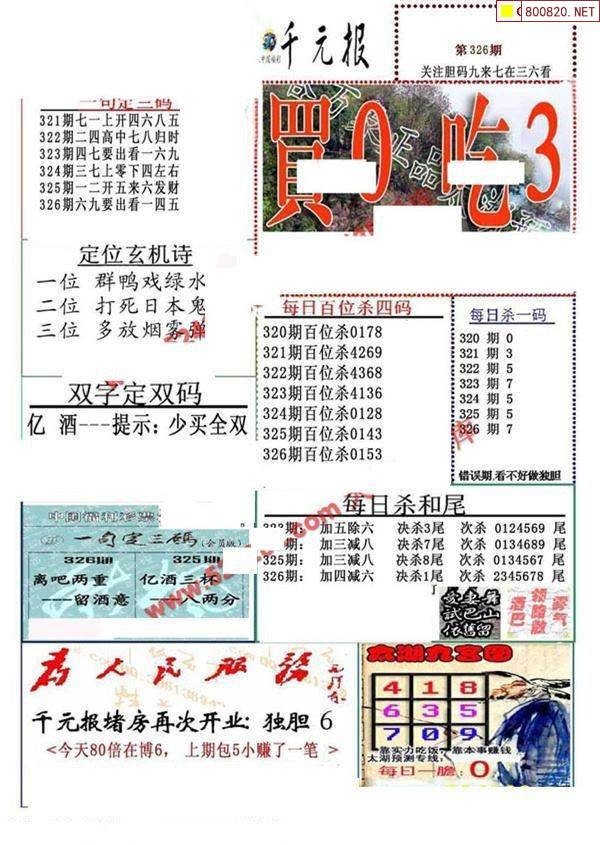 800820.NET
千元报
第326期
关注胆码九来七在三六看
買0 吃3
一句定三码
321期七一上开四六八五
322期二四高中七八归时
323期四七要出看一六九
324期三七上零下四左右
325期一二开五来六发财
326期六九要出看一四五
定位玄机诗
一位 群鸭戏绿水
二位 打死日本鬼
三位 多放烟雾弹
双字定双码
亿 酒---提示: 少买全双
每日百位杀四码
320期百位杀0178
321期百位杀4269
322期百位杀4368
323期百位杀4136
324期百位杀0128
325期百位杀0143
326期百位杀0153
每日杀一码
320 期 0
321 期 3
322 期 5
323 期 7
324 期 5
325 期 5
326 期 7
错误期,看不好做独胆
每日杀和尾
期: 加五除六 决杀3尾 次杀 0124569 尾
期: 加三减八 决杀7尾 次杀 0134689 尾
325期: 加三减八 决杀8尾 次杀 0134567 尾
326期: 加四减六 决杀1尾 次杀 2345678 尾
一句定三码(会员版)
326期
离吧两重
---留酒意
325期
亿酒三杯
---八两分
为人民服务
千元报堵房再次开业: 独胆 6
<今天80倍在博6, 上期包5小赚了一笔 >
太湖九宫图
4 1 8
6 3 5
7 0 9
靠实力吃饭, 靠本事赚钱
太湖预测专线:
每日一胆: 0